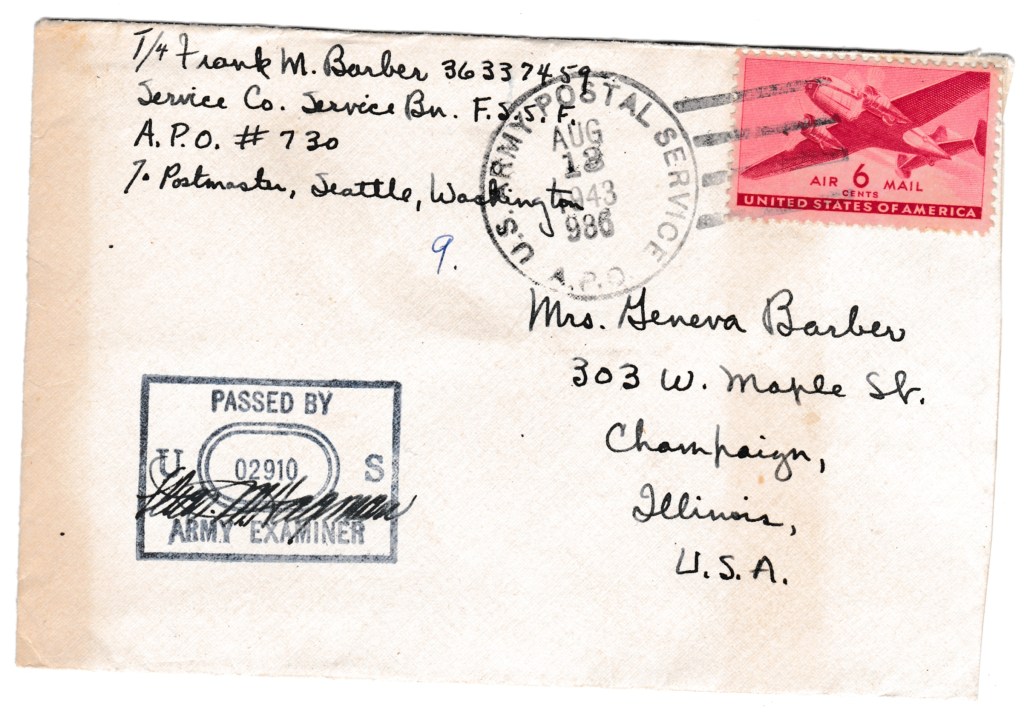 T/4 Frank M. Barber 36337459
Service Co. Service Bn. F.S.S.F.
A.P.O. # 730
℅ Postmaster, Seattle, Washington
U.S. ARMY POSTAL SERVICE
AUG
13
1943
986
A.P.O.
AIR 6 MAIL
CENTS
UNITED STATES OF AMERICA
9.
Mrs. Geneva Barber
303 W. Maple St.
Champaign,
Illinois,
U.S.A.
PASSED BY
U 02910 S
ARMY EXAMINER